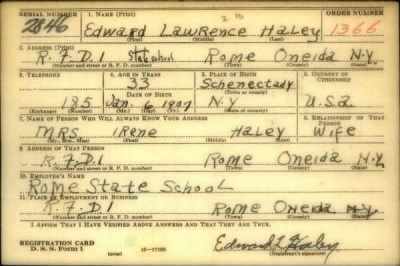 SERIAL NUMBER 1. NAME (Print) ORDER NUMBER
2846 Edward Lawrence Haley 1366
(First) (Middle) (Last)
2. ADDRESS (Print)
R.F.D.1 State School Rome Oneida N.Y.
(Number and street or R. F. D. number) (Town) (County) (State)
3. TELEPHONE 4. AGE IN YEARS 5. PLACE OF BIRTH 6. COUNTRY OF CITIZENSHIP
33 Schenectady
DATE OF BIRTH (Town or county)
185 Jan. 6 1907 N.Y. U.S.a.
(Exchange) (Number) (Mo.) (Day) (Yr.) (State or country)
7. NAME OF PERSON WHO WILL ALWAYS KNOW YOUR ADDRESS 8. RELATIONSHIP OF THAT PERSON
Mrs Irene Haley Wife
(Mr., Mrs., Miss) (First) (Middle) (Last)
9. ADDRESS OF THAT PERSON
R.F.D.1 Rome Oneida N.Y.
(Number and street or R. F. D. number) (Town) (County) (State)
10. EMPLOYER'S NAME
Rome State School
11. PLACE OF EMPLOYMENT OR BUSINESS
R.F.D.1 Rome Oneida N.Y.
(Number and street or R. F. D. number) (Town) (County) (State)
I AFFIRM THAT I HAVE VERIFIED ABOVE ANSWERS AND THAT THEY ARE TRUE.
REGISTRATION CARD
D. S. S. Form 1 (over) Edward L Haley
(Registrant's signature)